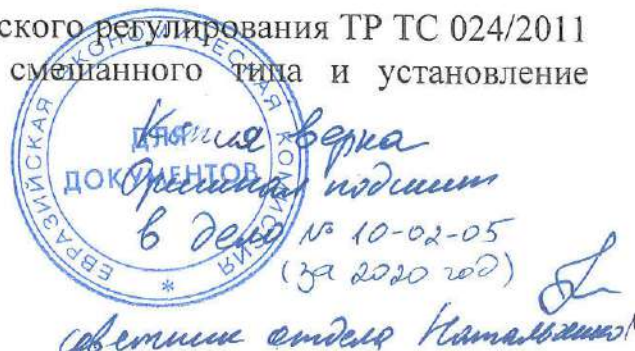 ского регулирования ТР ТС 024/2011
смешанного типа и установление
ЕВРАЗИЙСКАЯ ЭКОНОМИЧЕСКАЯ КОМИССИЯ
*
ДЛЯ
ДОКУМЕНТОВ
Копия верна
Оригинал подшит
в дело № 10-02-05
(за 2020 год)
советник отдела